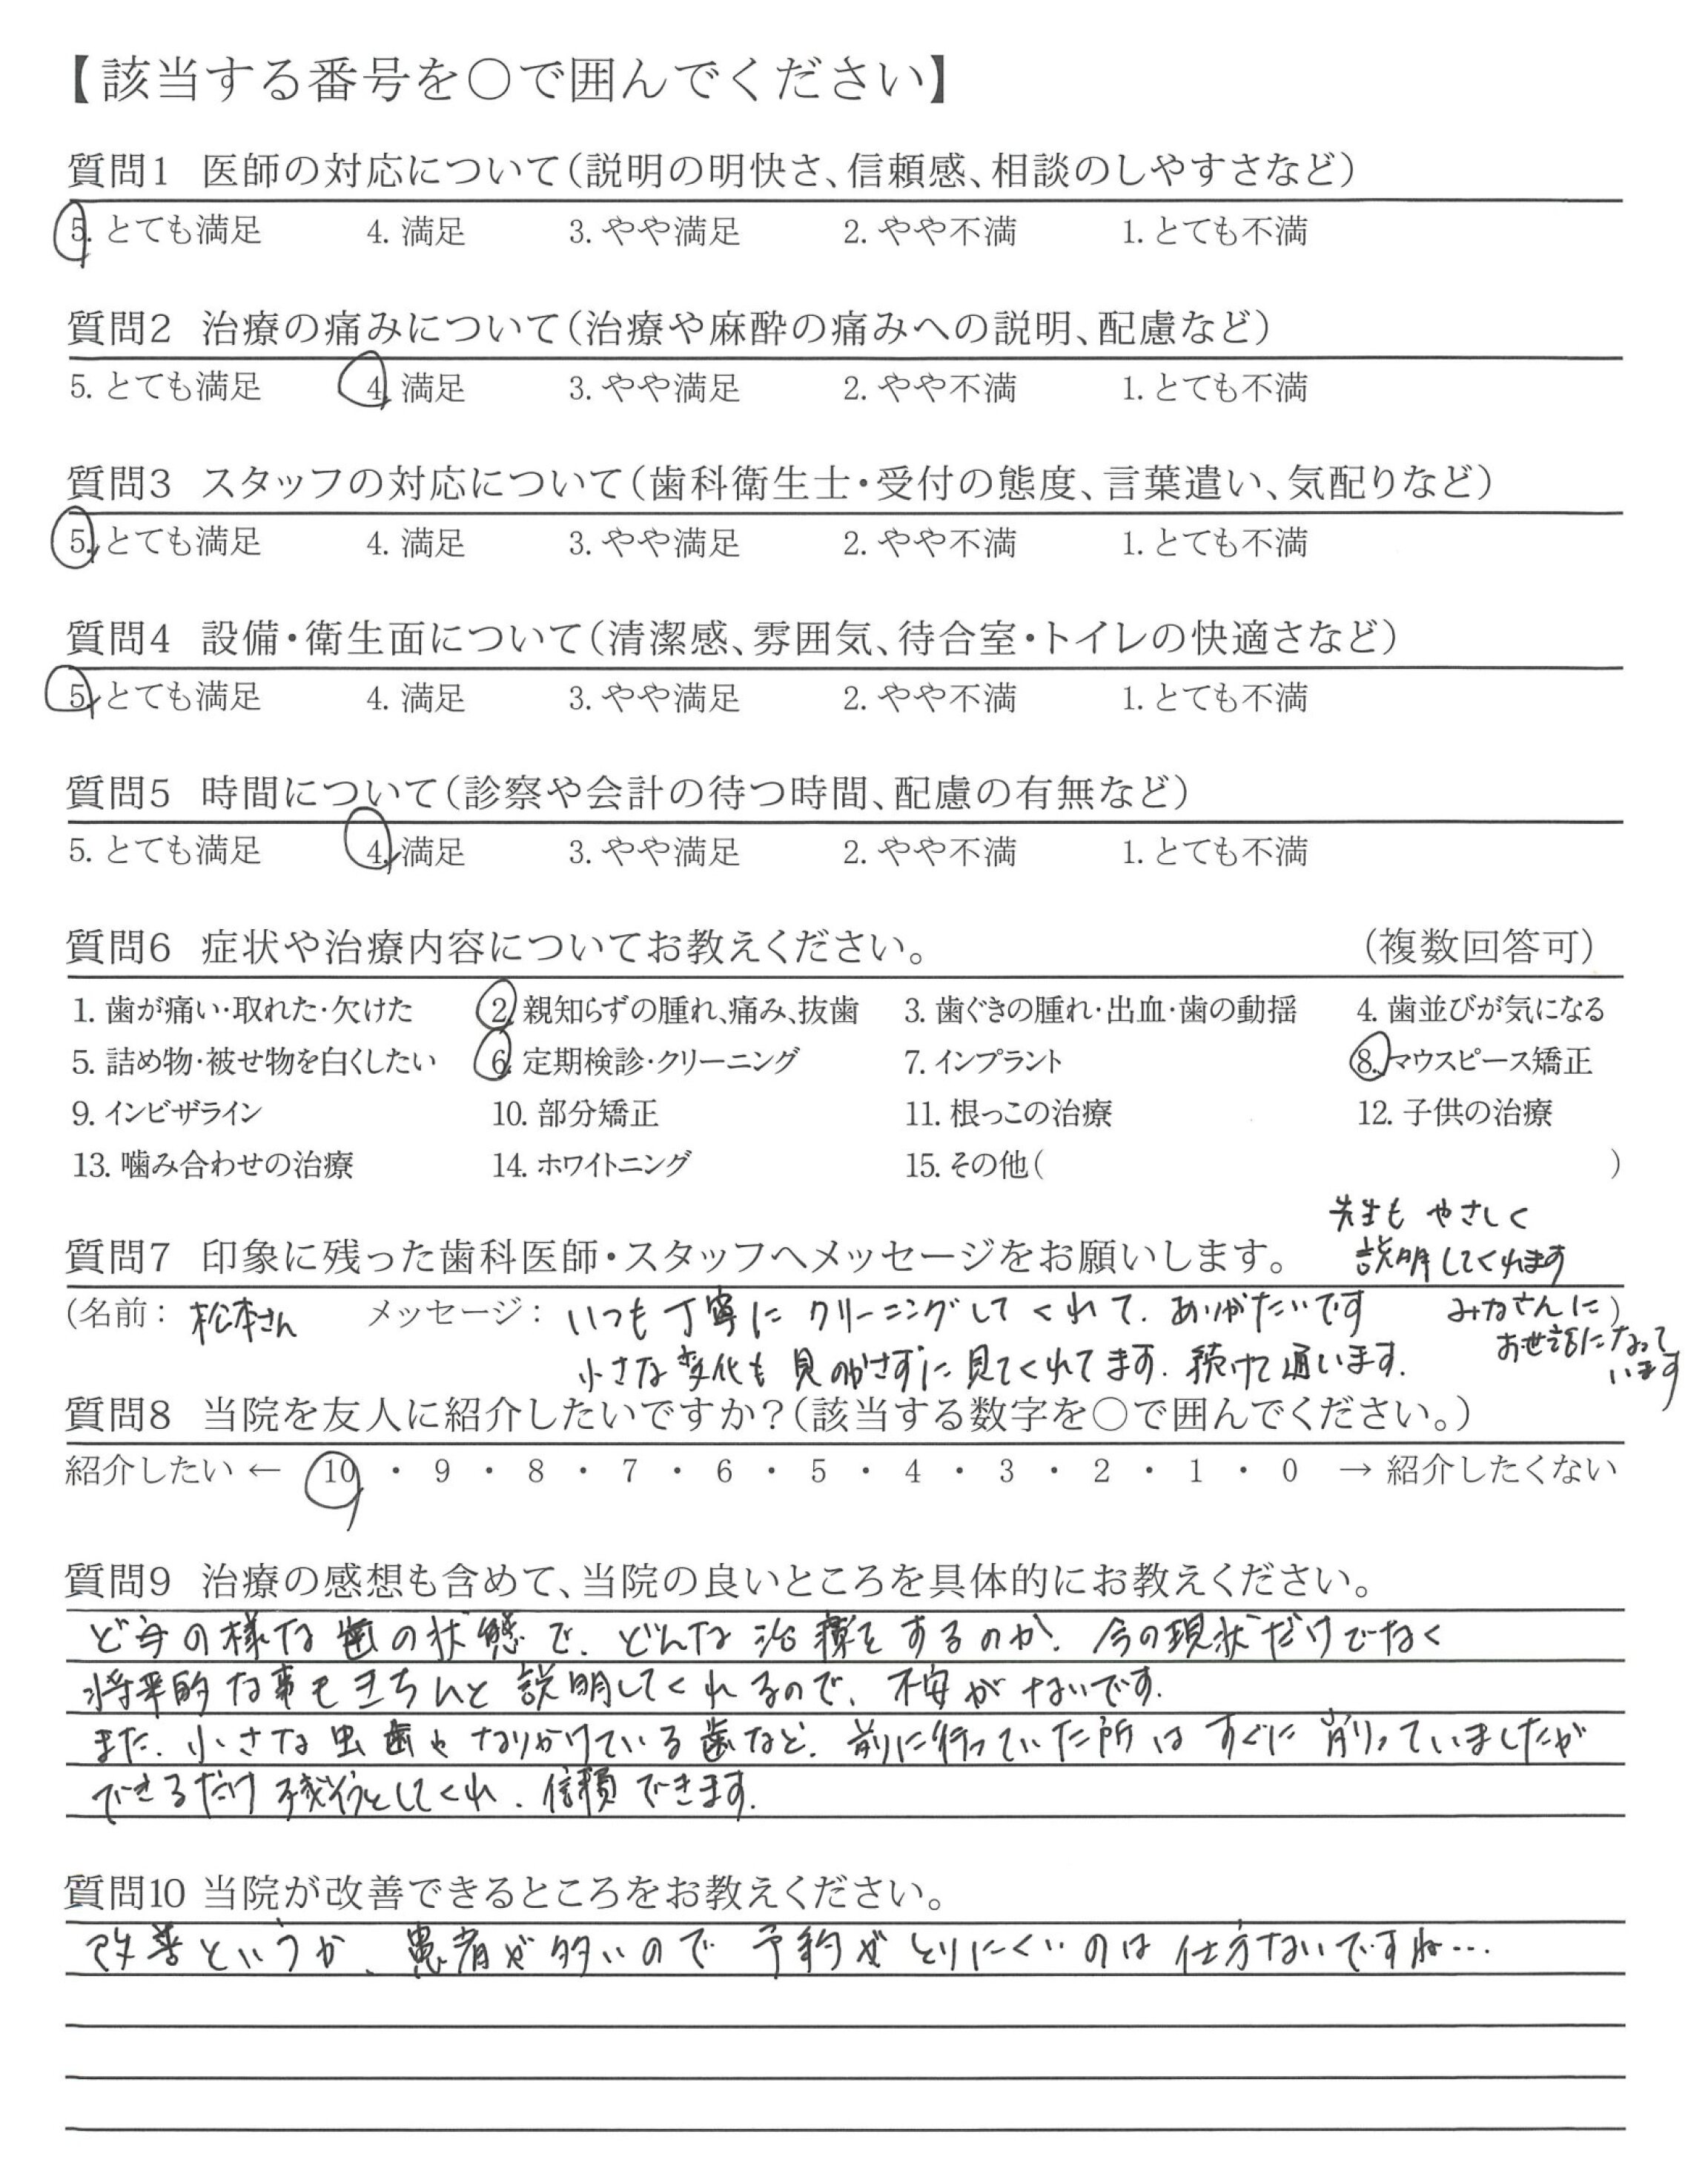 【該当する番号を○で囲んでください】
質問1 医師の対応について(説明の明快さ、信頼感、相談のしやすさなど)
5. とても満足 4. 満足 3. やや満足 2. やや不満 1. とても不満
質問2 治療の痛みについて(治療や麻酔の痛みへの説明、配慮など)
5. とても満足 4. 満足 3. やや満足 2. やや不満 1. とても不満
質問3 スタッフの対応について(歯科衛生士・受付の態度、言葉遣い、気配りなど)
5. とても満足 4. 満足 3. やや満足 2. やや不満 1. とても不満
質問4 設備・衛生面について(清潔感、雰囲気、待合室・トイレの快適さなど)
5. とても満足 4. 満足 3. やや満足 2. やや不満 1. とても不満
質問5 時間について(診察や会計の待つ時間、配慮の有無など)
5. とても満足 4. 満足 3. やや満足 2. やや不満 1. とても不満
質問6 症状や治療内容についてお教えください。 (複数回答可)
1. 歯が痛い・取れた・欠けた 2. 親知らずの腫れ、痛み、抜歯 3. 歯ぐきの腫れ・出血・歯の動揺 4. 歯並びが気になる
5. 詰め物・被せ物を白くしたい 6. 定期検診・クリーニング 7. インプラント 8. マウスピース矯正
9. インビザライン 10. 部分矯正 11. 根っこの治療 12. 子供の治療
13. 噛み合わせの治療 14. ホワイトニング 15. その他( )
質問7 印象に残った歯科医師・スタッフへメッセージをお願いします。
(名前: 松本さん メッセージ: いつも丁寧に クリーニングしてくれて、ありがたいです )
小さな変化も見のがさずに見てくれてます。続けて通います。
先生も やさしく
説明してくれます
みなさんに
お世話になって
います
質問8 当院を友人に紹介したいですか?(該当する数字を○で囲んでください。)
紹介したい ← 10 ・ 9 ・ 8 ・ 7 ・ 6 ・ 5 ・ 4 ・ 3 ・ 2 ・ 1 ・ 0 → 紹介したくない
質問9 治療の感想も含めて、当院の良いところを具体的にお教えください。
の様な歯の状態で、どんな治療をするのか、今の現状だけでなく
将来的な事もきちんと説明してくれるので、不安がないです。
また、小さな虫歯やなりかけている歯など、前に行っていた所はすぐに削っていましたが
できるだけ残そうとしてくれ、信頼できます。
質問10 当院が改善できるところをお教えください。
改善というか、患者が多いので予約がとりにくいのは仕方ないですね…